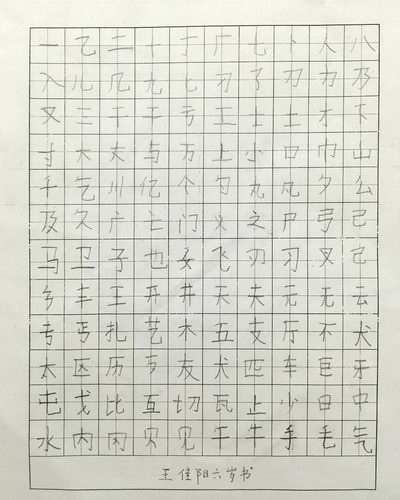 一乙二十丁厂七卜人八
入儿几九匕刁了刀力乃
又三干于亏工士土才下
寸大丈与万上小口巾山
千乞川亿个勺丸凡夕么
及久广亡门义之尸弓己
马卫子也女飞刃习叉已
乡丰王开井天夫元无云
专丐扎艺木五支厅不犬
太区历歹友犬匹车巨牙
屯戈比互切瓦止少日中
水内冈贝见午牛手毛气
王佳阳六岁书